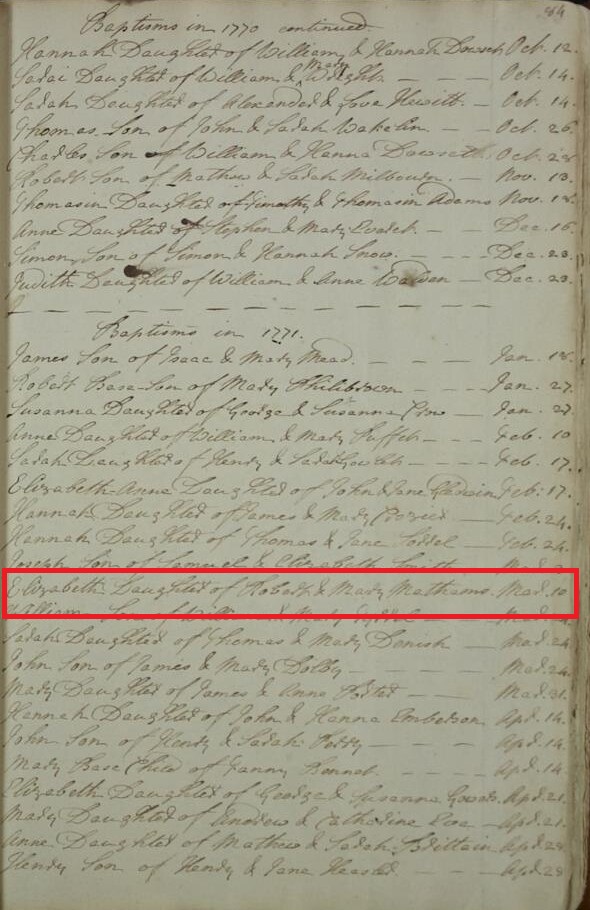 84
Baptisms in 1770 continued
Hannah Daughter of William & Hannah Dowset Oct. 12.
Sarai Daughter of William & Mary Wright. - - - Oct. 14.
Sarah Daughter of Alexander & Love Hewitt - - Oct. 14.
Thomas Son of John & Sarah Wakelin. - - Oct. 26
Charles Son of William & Hanna Dowset Oct. 28
Robert Son of Mathew & Sarah Milbourn. - Nov. 13.
Thomasin Daughter of Timothy & Thomasin Adams Nov. 18.
Anne Daughter of Stephen & Mary - - Dec. 16.
Simon Son of Simon & Hannah Snow. - - Dec. 23.
Judith Daughter of William & Anne Warden - Dec. 23.
Baptisms in 1771.
James Son of Isaac & Mary Mead. - - - Jan. 18.
Robert Base-Son of Mary Philibrown - - Jan. 27.
Susanna Daughter of George & Susanna Crow - Jan. 27
Anne Daughter of William & Mary - - Feb. 10
Sarah Daughter of Henry & Sarah - - Feb. 17.
Elizabeth-Anne Daughter of John & Jane Feb. 17.
Hannah Daughter of James & Mary Crozier - - Feb. 24.
Hannah Daughter of Thomas & Jane - - Feb. 24.
Joseph Son of Samuel & Elizabeth Smith
Elizabeth Daughter of Robert & Mary Mathams. Mar. 10
William Son of Will & Mary Mar.
Sarah Daughter of Thomas & Mary Denish - - Mar. 24
John Son of James & Mary Dolby - - - Mar. 24.
Mary Daughter of James & Anne - - Mar. 31.
Hannah Daughter of John & Hanna Emberson Apr. 14.
John Son of Henry & Sarah Perry - - - Apr. 14.
Mary Base Child of Fanny Kennet. - - - Apr. 14
Elizabeth Daughter of George & Susanna Apr. 21.
Mary Daughter of Andrew & Catherine Eve - Apr. 21.
Anne Daughter of Mathew & Sarah Brittain Apr. 28
Henry Son of Henry & Jane - - - Apr. 28